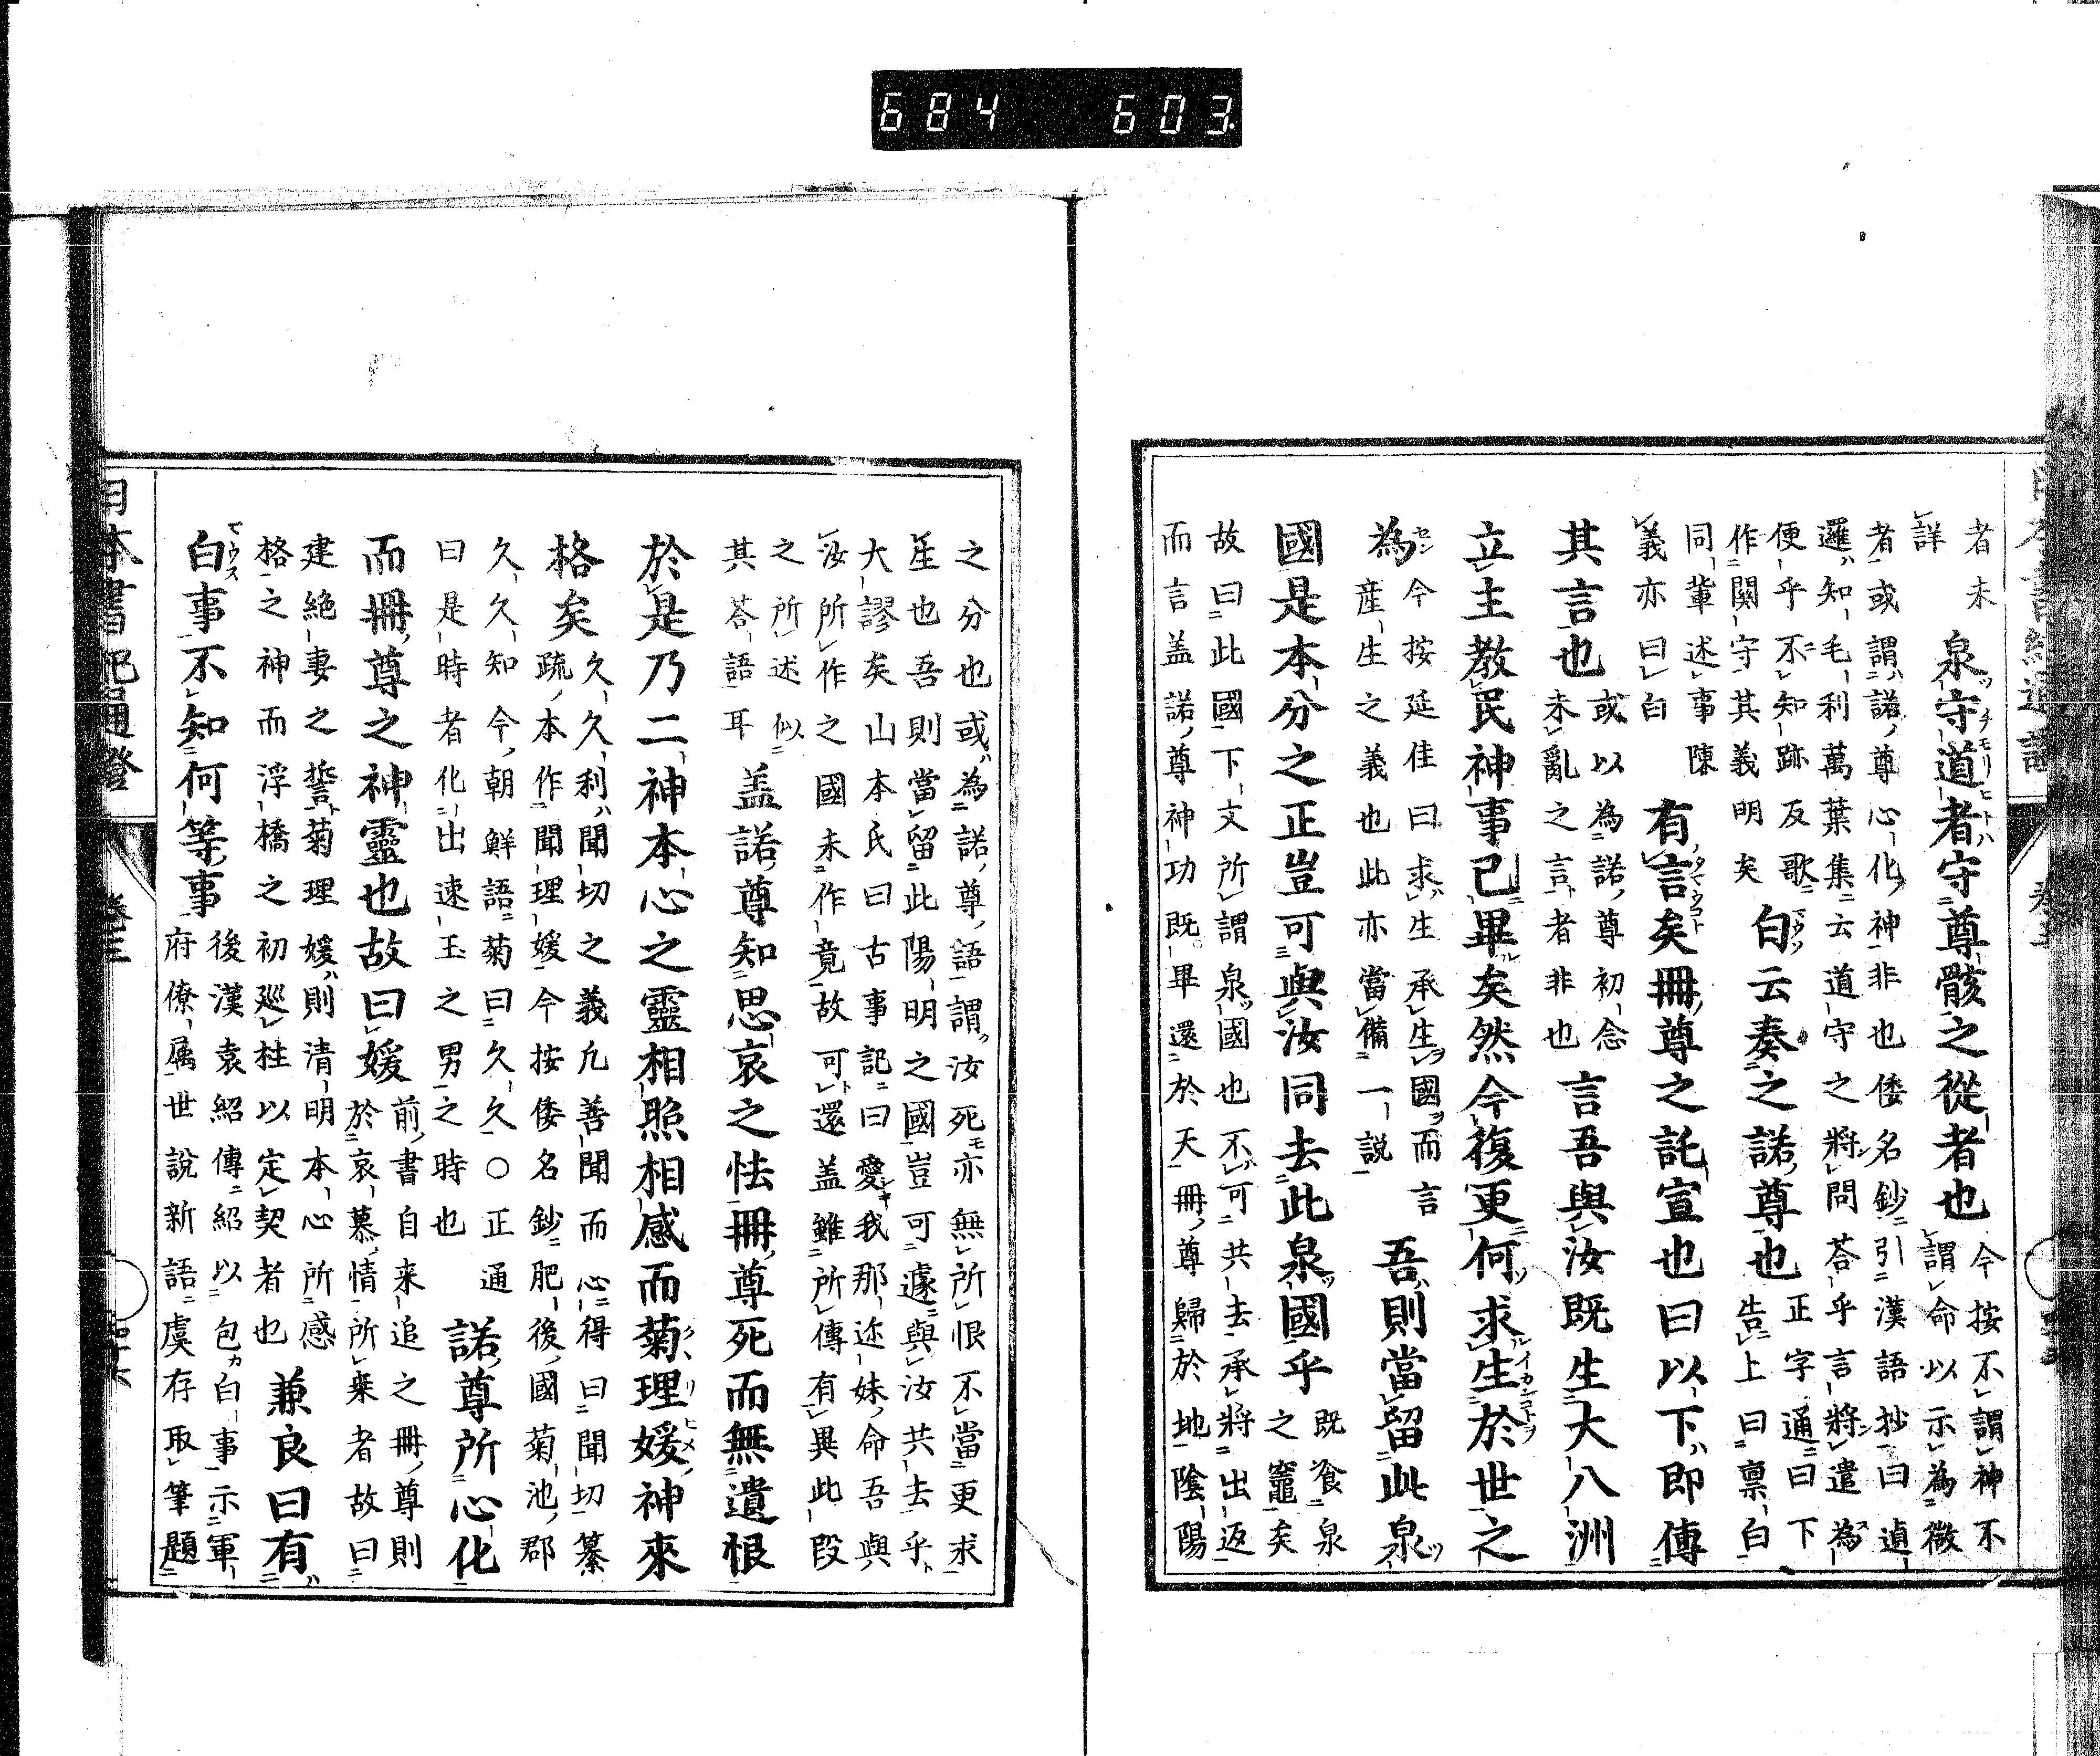 者未
詳
泉守道者守尊骸之從者也
今按不謂神不
謂命以示為微
者或謂諾尊心化神非也倭名鈔引漢語抄曰逌
邏知毛利萬葉集云道守之將問荅乎言將遣為
便乎不知跡反歌
作關守其義明矣
白云奏之諾尊也
正字通曰下
告上曰禀白
同輩述事陳
義亦曰白
有言矣冊尊之託宣也曰以下即傳
其言也
或以為諾尊初念
未亂之言者非也
言吾與汝既生大八洲
立主教民神事已畢矣然今復更何求生於世之
為
今按延佳曰求生承生國而言
産生之義也此亦當備一説
吾則當留此泉
國是本分之正豈可與汝同去此泉國乎
既飡泉
之竈矣
故曰此國下文所謂泉國也不可共去承將出返
而言盖諾尊神功既畢還於天冊尊歸於地陰陽
之分也或為諾尊語謂汝死亦無所恨不當更求
生也吾則當留此陽明之國豈可遽與汝共去乎
大謬矣山本氏曰古事記曰愛我那迩妹命吾與
汝所作之國未作竟故可還盖雖所傳有異此段
之所述似
其荅語耳
盖諾尊知思哀之怯冊尊死而無遺恨
於是乃二神本心之靈相照相感而菊理媛神來
格矣
久久利聞切之義凡善聞而心得曰聞切纂
疏本作聞理媛今按倭名鈔肥後國菊池郡
久久知今朝鮮語菊曰久久○正通
曰是時者化出速玉之男之時也
諾尊所心化
而冊尊之神靈也故曰媛
前書自来追之冊尊則
於哀慕情所乗者故曰
建絶妻之誓菊理媛則清明本心所感
格之神而浮橋之初廵柱以定契者也
兼良曰有
白事不知何等事
後漢袁紹傳紹以包白事示軍
府僚属世說新語虞存取筆題
日本書紀通證
卷三